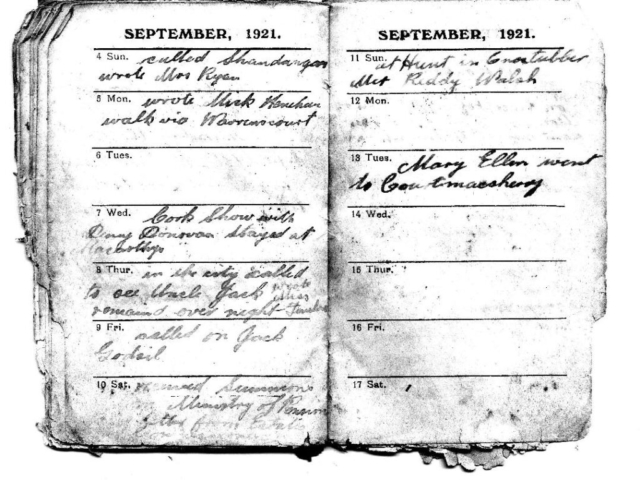 SEPTEMBER, 1921.
4 Sun. called Shandangan
wrote Mrs Ryan
5 Mon. wrote Mick
walk via Warrenscourt
6 Tues.
7 Wed. Cork Show with
Donovan stayed at
8 Thur. in the city called
to see Uncle Jack wrote
Miss
remained over night
9 Fri. called on Jack
10 Sat. received Summons
Ministry of
from
SEPTEMBER, 1921.
11 Sun. at Hunt in
Met Reddy Walsh
12 Mon.
13 Tues. Mary Ellen went
to Courtmacsherry
14 Wed.
15 Thur.
16 Fri.
17 Sat.